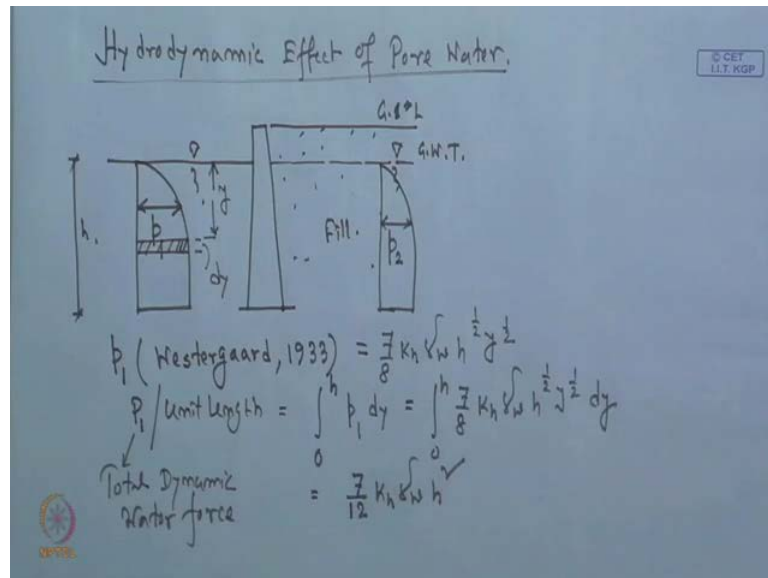 Hydrodynamic Effect of Pore Water.
© CET
I.I.T. KGP
G.W.T.
h.
y
dy
Fill.
p₂
p₁ (Westergaard, 1933) = 7/8 Kh γw h^1/2 y^1/2
P₁/unit length = ∫₀^h p₁ dy = ∫₀^h 7/8 Kh γw h^1/2 y^1/2 dy
Total Dynamic
Water force
= 7/12 Kh γw h²
NPTEL